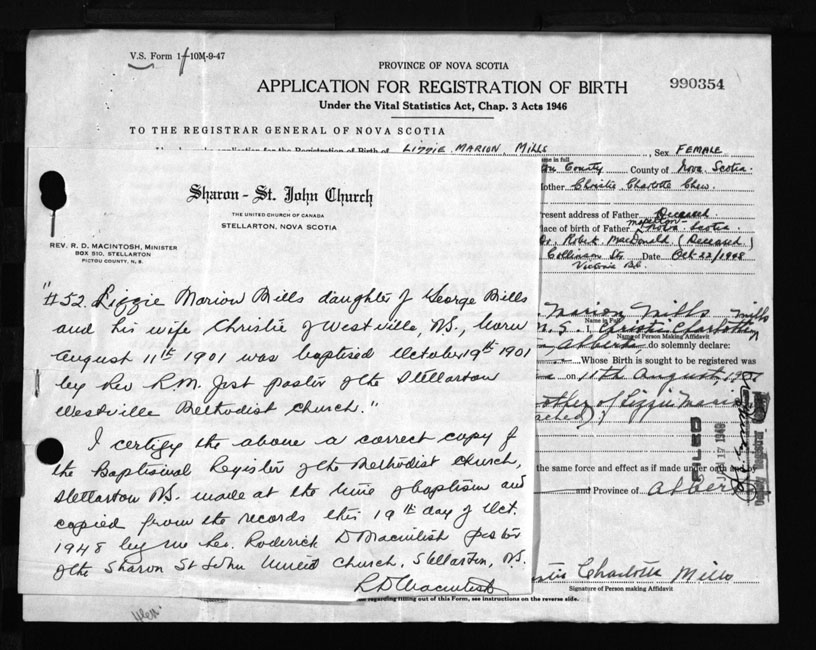 V.S. Form 1-10M-9-47
PROVINCE OF NOVA SCOTIA
APPLICATION FOR REGISTRATION OF BIRTH
990354
Under the Vital Statistics Act, Chap. 3 Acts 1946
TO THE REGISTRAR GENERAL OF NOVA SCOTIA
application for the Registration of Birth of LIZZIE MARION MILLS, Sex FEMALE
Name in full
County County of Nova Scotia
Mother Christie Charlotte Chew
Present address of Father Deceased
Place of birth of Father Nova Scotia
Dr. Robert MacDonald (Deceased)
Collinson St. Date Oct 22/1948
Victoria B.C.
Marion Mills Mills
Name in Full
N.S., Christie Charlotte
Name of Person making Affidavit
Alberta, do solemnly declare:
Whose Birth is sought to be registered was
on 11th August, 19
mother of Lizzie Mario
ached);
FILED
the same force and effect as if made under oath
and Province of Alber
Charlotte Mills
Signature of Person making Affidavit
regarding filling out of this Form, see instructions on the reverse side.
Sharon - St. John Church
THE UNITED CHURCH OF CANADA
STELLARTON, NOVA SCOTIA
REV. R. D. MACINTOSH, MINISTER
BOX 510, STELLARTON
PICTOU COUNTY, N. S.
"#52. Lizzie Marion Mills daughter of George Mills
and his wife Christie of Westville, N.S., born
August 11th 1901 was baptised October 19th 1901
by Rev R.M. Jost pastor of the Stellarton
Westville Methodist Church."
I certify the above a correct copy of
the Baptismal Register of the Methodist Church,
Stellarton N.S. made at the time of baptism and
copied from the records this 19th day of Oct.
1948 by me Rev. Roderick D Macintosh pastor
of the Sharon St John United Church, Stellarton, N.S.
R D Macintosh